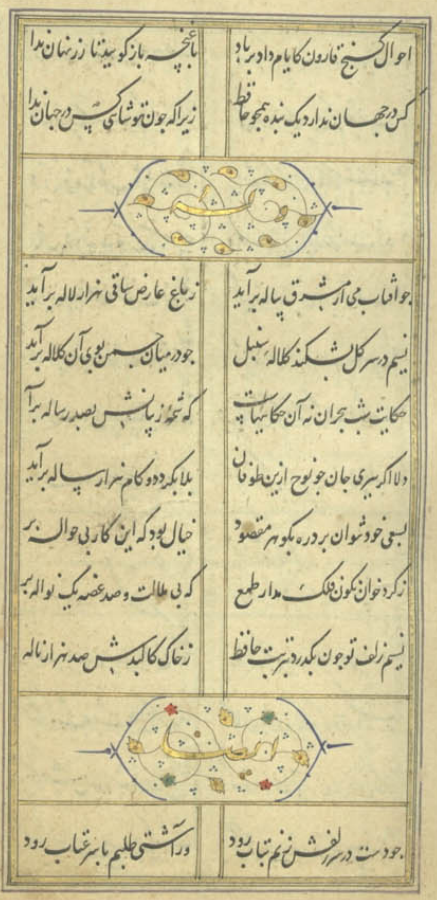 احوال کنج قارون کایام داد برباد با غنچه باز کویید تا زر نهان ندا
کس در جهان ندارد یک بنده همچو حافظ زیرا که چون تو شاهی کس در جهان ندا
چو آفتاب می از مشرق پیاله برآید ز باغ عارض ساقی هزار لاله برآید
نسیم در سر کل بشکند کلاله سنبل چو در میان چمن بوی آن کلاله برآید
حکایت شب هجران نه آن حکایتهاست که شمه ز بیانش بصد رساله برآ
دلا اکر ببری جان چو نوح ازین طوفان بلا بکردد و کام هزار ساله برآید
بسعی خود نتوان برد ره بکوهر مقصود خیال بود که این کار بی حواله بر
ز کرد خوان نکون فلک مدار طمع که بی ملالت و صد غصه یک نواله بر
نسیم زلف تو چون بکذرد بتربت حافظ ز خاک کالبدش صد هزار ناله
ایضا
چو دست در سر زلفش زنم بتاب رود ور آشتی طلبم با سر عتاب رود